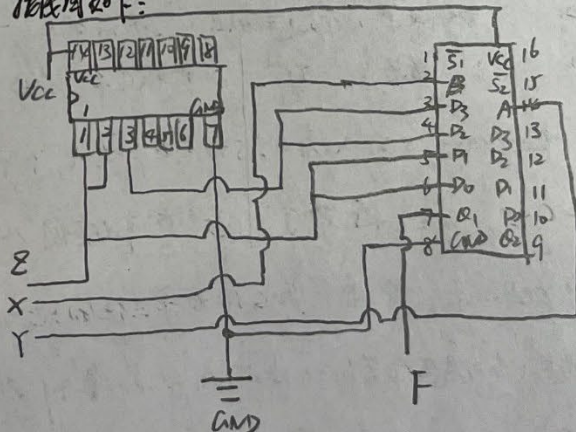 接线图如下:
14 13 12 11 10 9 8
Vcc
Vcc
1 GND
1 2 3 4 5 6 7
1 S̅1 Vcc 16
2 B S̅2 15
3 D3 A 14
4 D2 D3 13
5 D1 D2 12
6 D0 D1 11
7 Q1 D0 10
8 GND Q2 9
Z
X
Y
F
GND